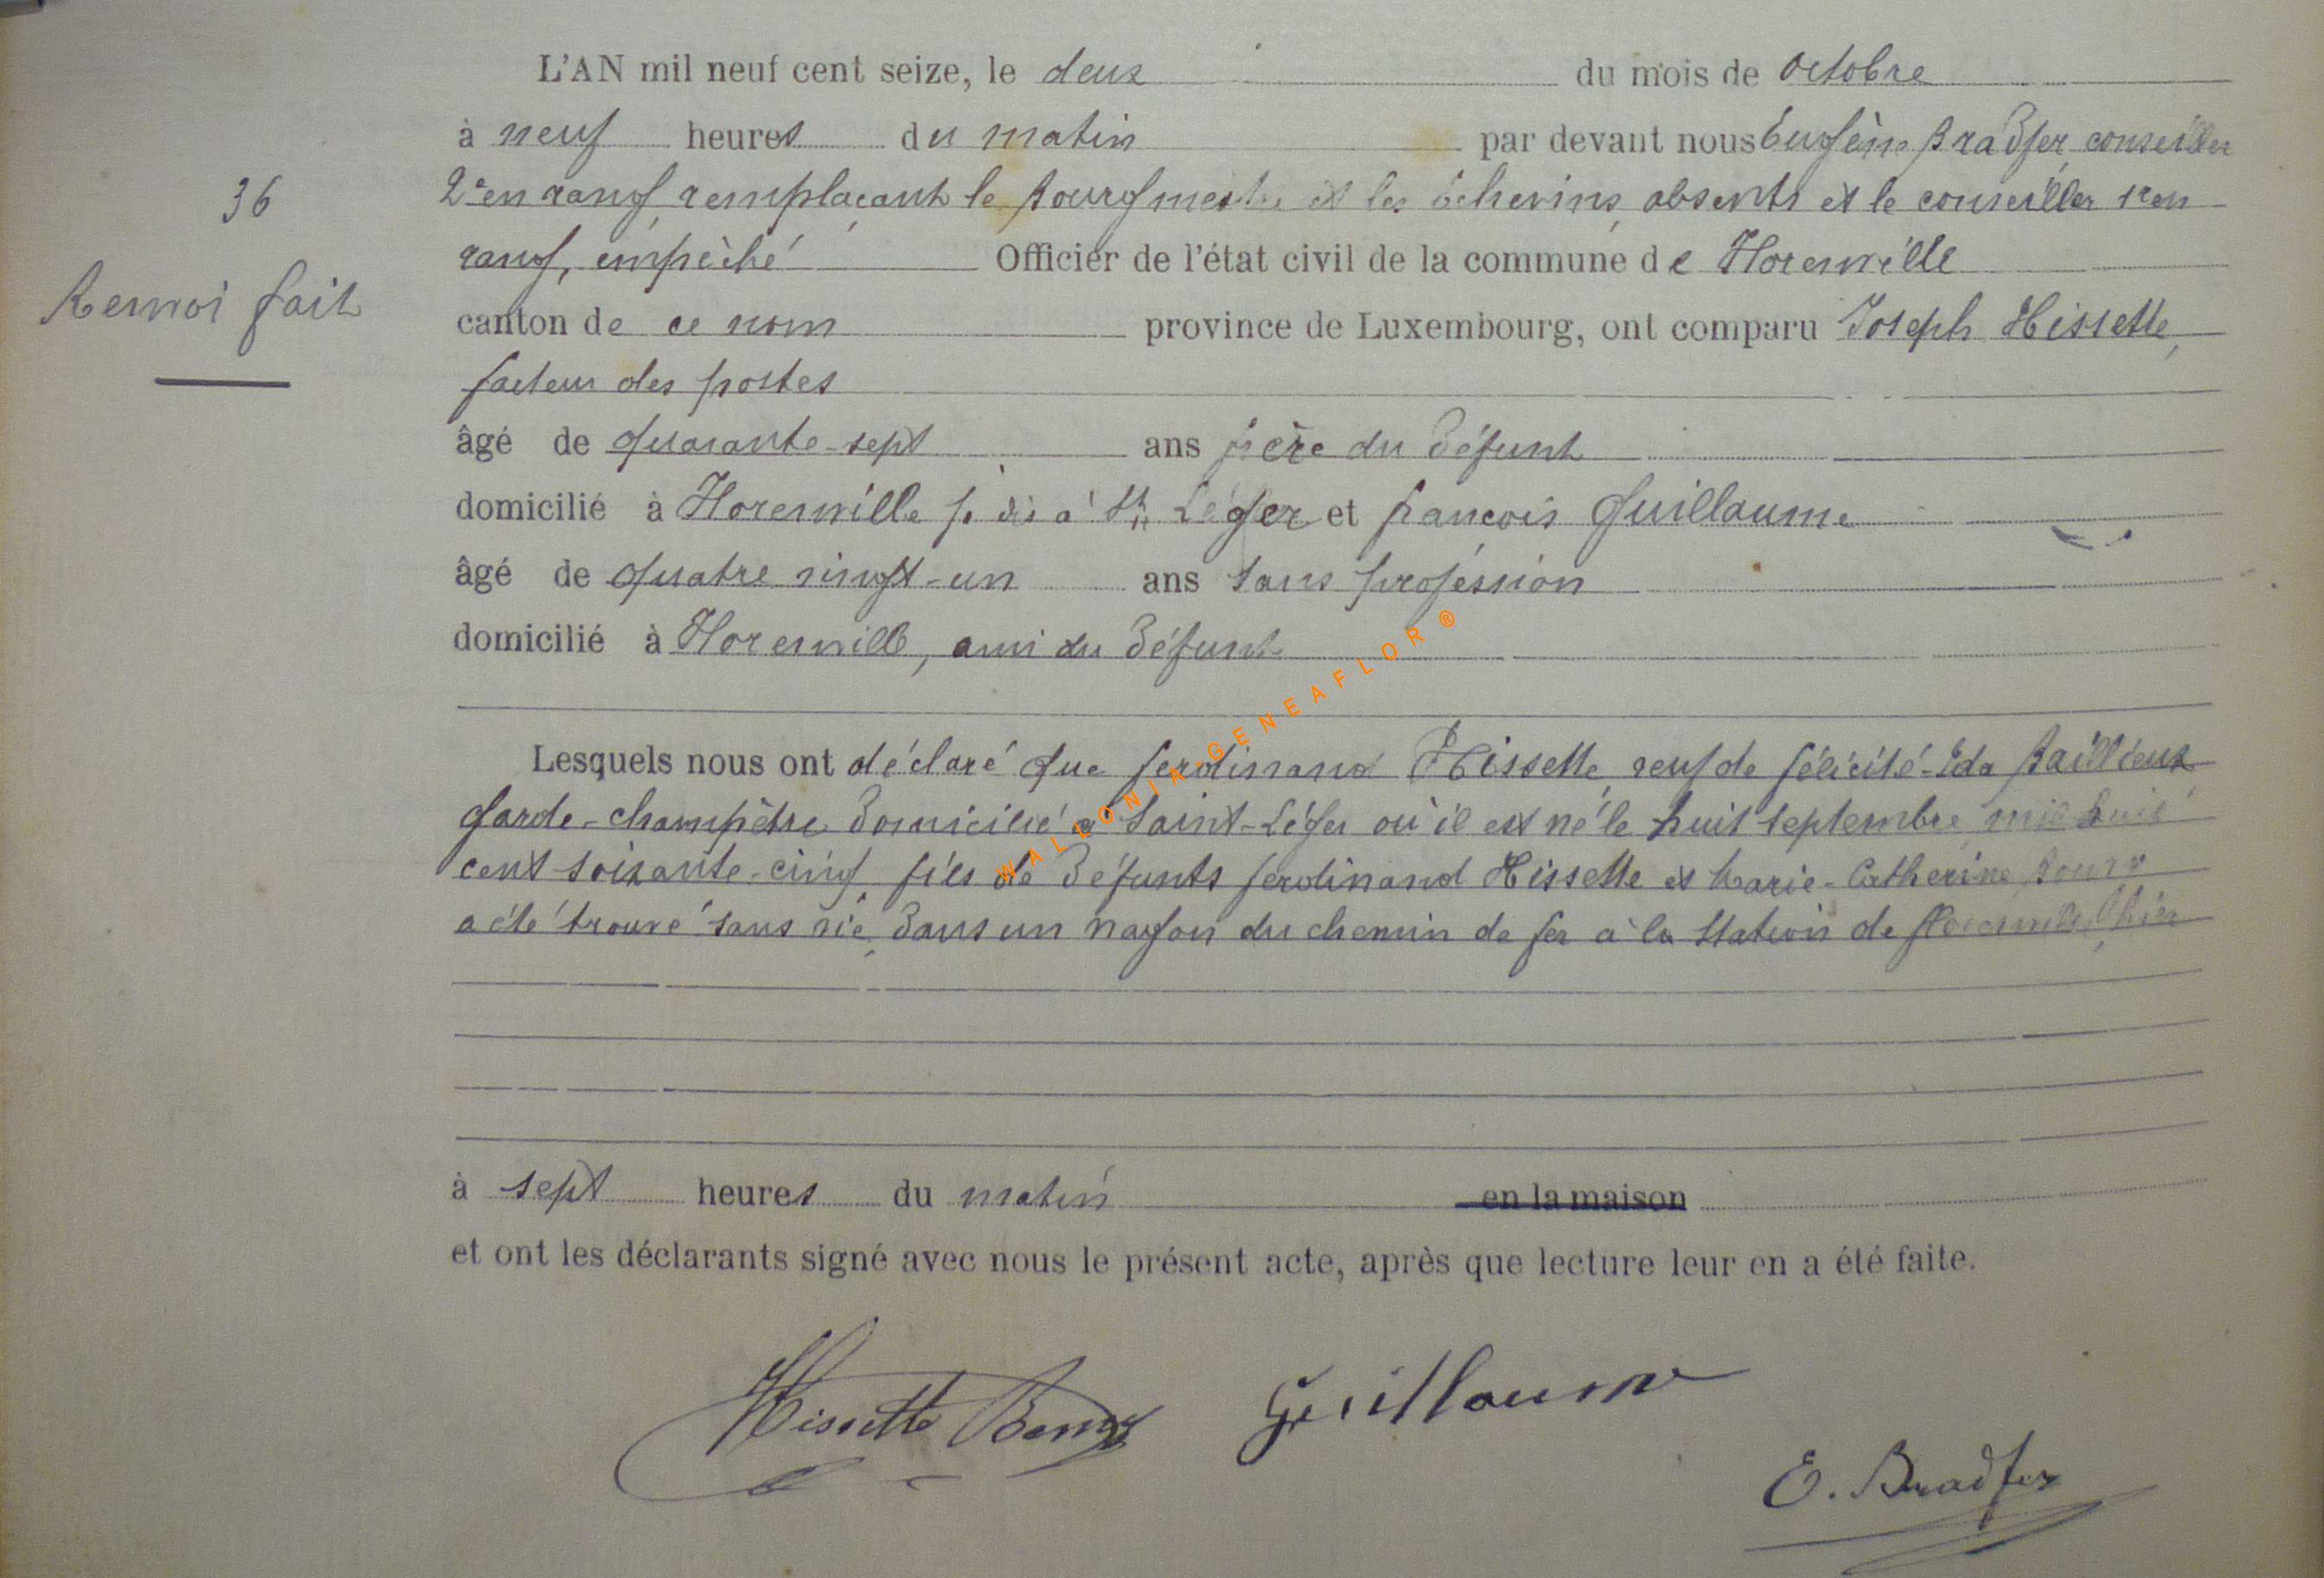 L'AN mil neuf cent seize, le deux du mois de Octobre
à neuf heures du matin par devant nous Eugène Bradfer conseiller
2e en rang remplaçant le Bourgmestre et les échevins absents et le conseiller 1er en
36
rang, empêché Officier de l'état civil de la commune de Florenville
Renvoi fait
canton de ce nom province de Luxembourg, ont comparu Joseph Hissette,
facteur des postes
âgé de quarante-sept ans frère du défunt
domicilié à Florenville à St Léger et françois Guillaume
âgé de quatre vingt-un ans sans profession
domicilié à Florenville, ami du défunt
Lesquels nous ont déclaré que ferdinand Hissette veuf de félicité-Ida Baillieux
garde-champêtre domicilié à Saint-Léger où il est né le huit septembre mil huit
cent soixante-cinq, fils de défunts ferdinand Hissette et Marie-Catherine
a été trouvé sans vie, dans un wagon du chemin de fer à la station de florenville, hier
à sept heures du matin en la maison
et ont les déclarants signé avec nous le présent acte, après que lecture leur en a été faite.
Hissette Guillaume
E. Bradfer
WALLONIA-GENEAFLOR ®